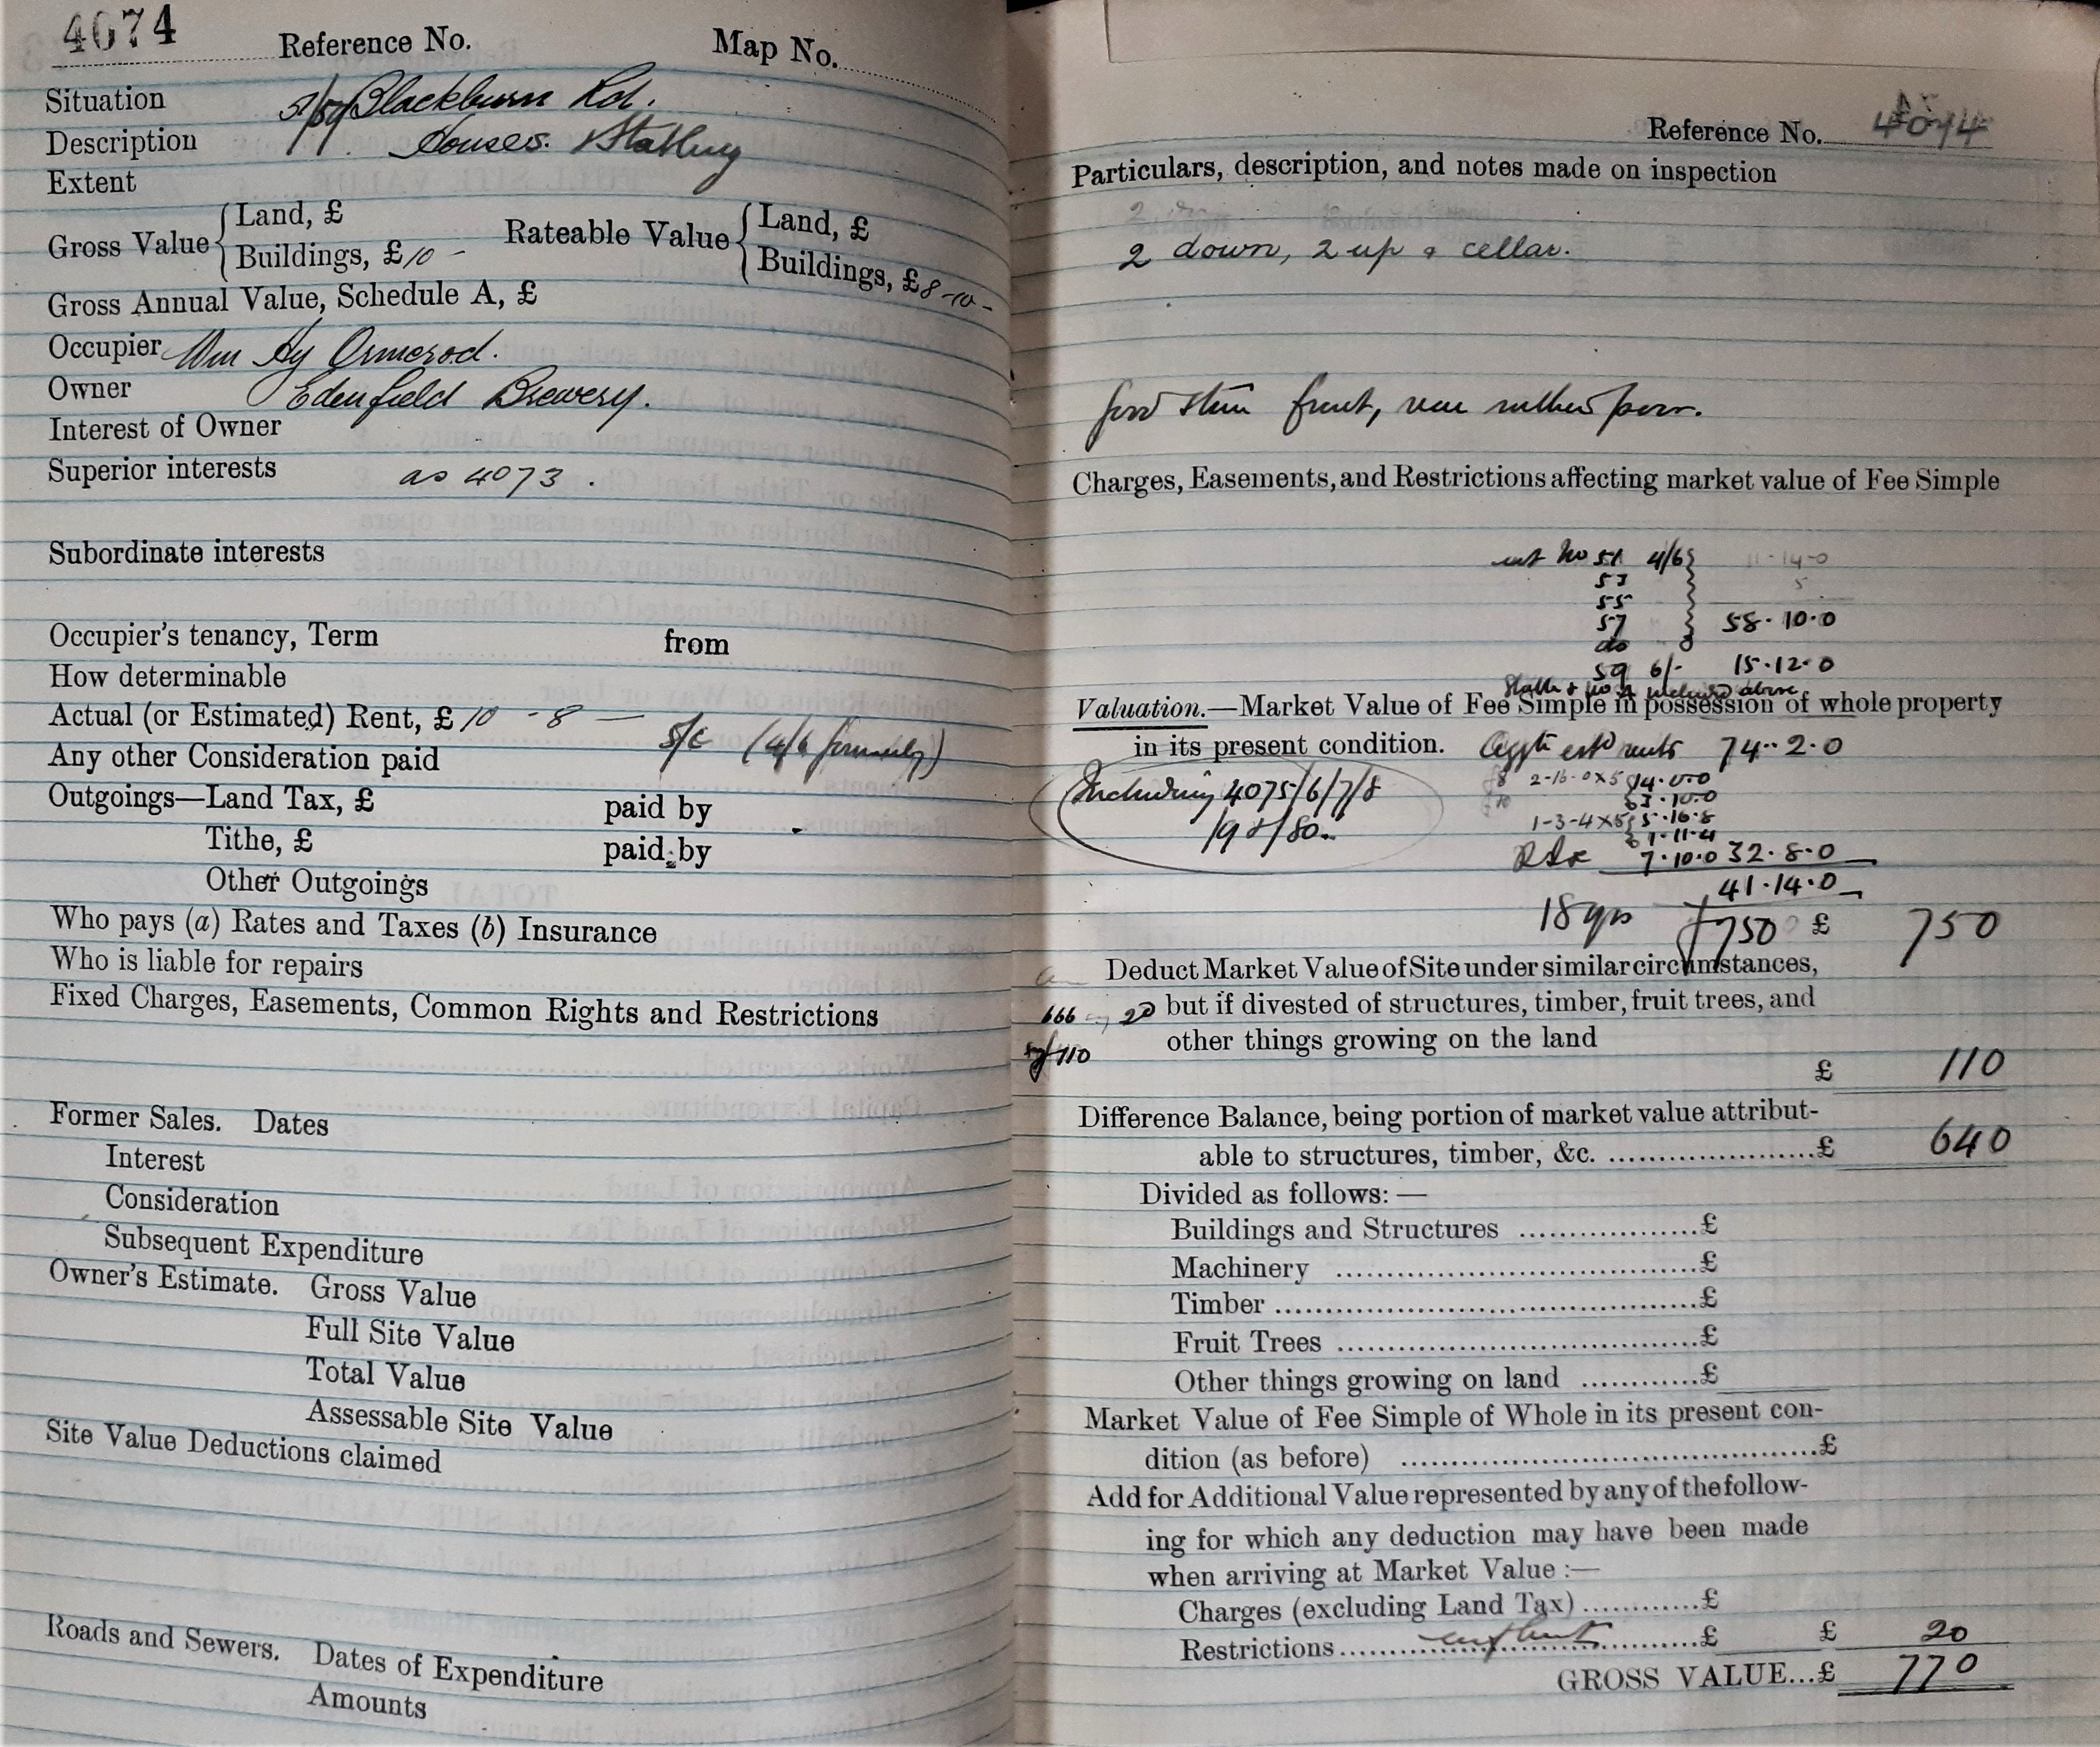 4074 Reference No. Map No.
Situation 51/59 Blackburn Rd.
Description Houses. & Stabling
Extent
Gross Value Land, £ Rateable Value Land, £
Buildings, £10 - Buildings, £8-10-
Gross Annual Value, Schedule A, £
Occupier Wm Hy Ormerod.
Owner Edenfield Brewery.
Interest of Owner
Superior interests as 4073.
Subordinate interests
Occupier's tenancy, Term from
How determinable
Actual (or Estimated) Rent, £10 - 8 —
Any other Consideration paid (4/6 formerly)
Outgoings—Land Tax, £ paid by
Tithe, £ paid by
Other Outgoings
Who pays (a) Rates and Taxes (b) Insurance
Who is liable for repairs
Fixed Charges, Easements, Common Rights and Restrictions
Former Sales. Dates
Interest
Consideration
Subsequent Expenditure
Owner's Estimate. Gross Value
Full Site Value
Total Value
Assessable Site Value
Site Value Deductions claimed
Roads and Sewers. Dates of Expenditure
Amounts
Reference No. 4074
Particulars, description, and notes made on inspection
2 down, 2 up & cellar.
good stone front, rear rather poor.
Charges, Easements, and Restrictions affecting market value of Fee Simple
No 51 4/6 11-14-0
53 5
55
57 58.10.0
do
59 6/- 15.12.0
Stable & included above
Valuation.—Market Value of Fee Simple in possession of whole property
in its present condition. est rents 74..2.0
Including 4075/6/7/8
/9 & /80..
2-16-0x5 14.0.0
1-3-4x5 5.16.8
1-11-4
7.10.0 32.8.0
41.14.0
18 yrs £750 £ 750
Deduct Market Value of Site under similar circumstances,
666 20 but if divested of structures, timber, fruit trees, and
110 other things growing on the land
£ 110
Difference Balance, being portion of market value attribut-
able to structures, timber, &c. ....................£ 640
Divided as follows: —
Buildings and Structures ..................£
Machinery ......................................£
Timber ............................................£
Fruit Trees ......................................£
Other things growing on land ............£
Market Value of Fee Simple of Whole in its present con-
dition (as before) ............................................£
Add for Additional Value represented by any of the follow-
ing for which any deduction may have been made
when arriving at Market Value :—
Charges (excluding Land Tax) ............£
Restrictions..................................£ £ 20
GROSS VALUE...£ 770